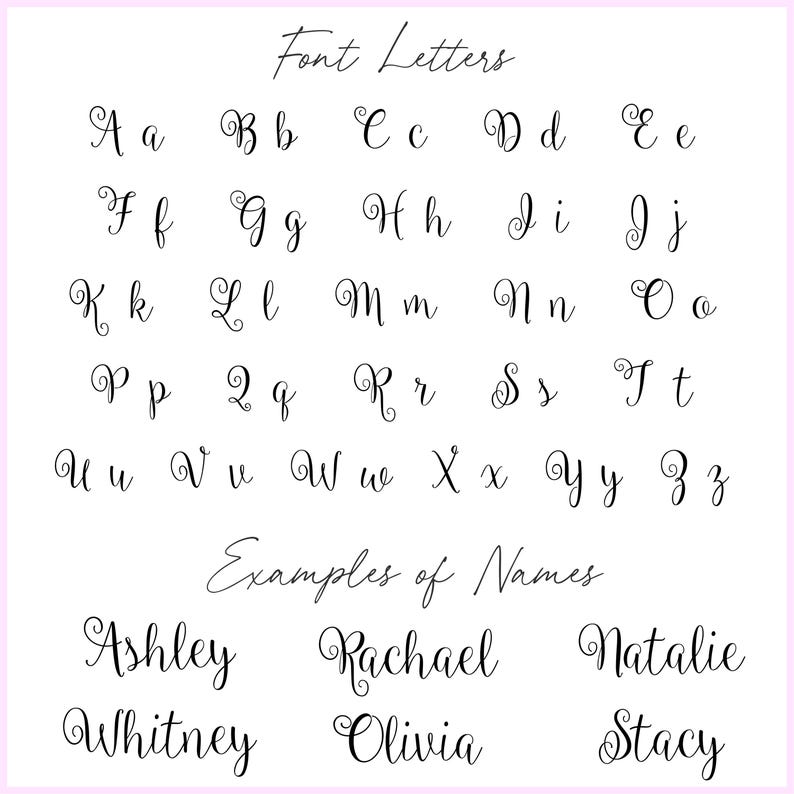 Font Letters
A a B b C c D d E e
F f G g H h I i J j
K k L l M m N n O o
P p Q q R r S s T t
U u V v W w X x Y y Z z
Examples of Names
Ashley Rachael Natalie
Whitney Olivia Stacy